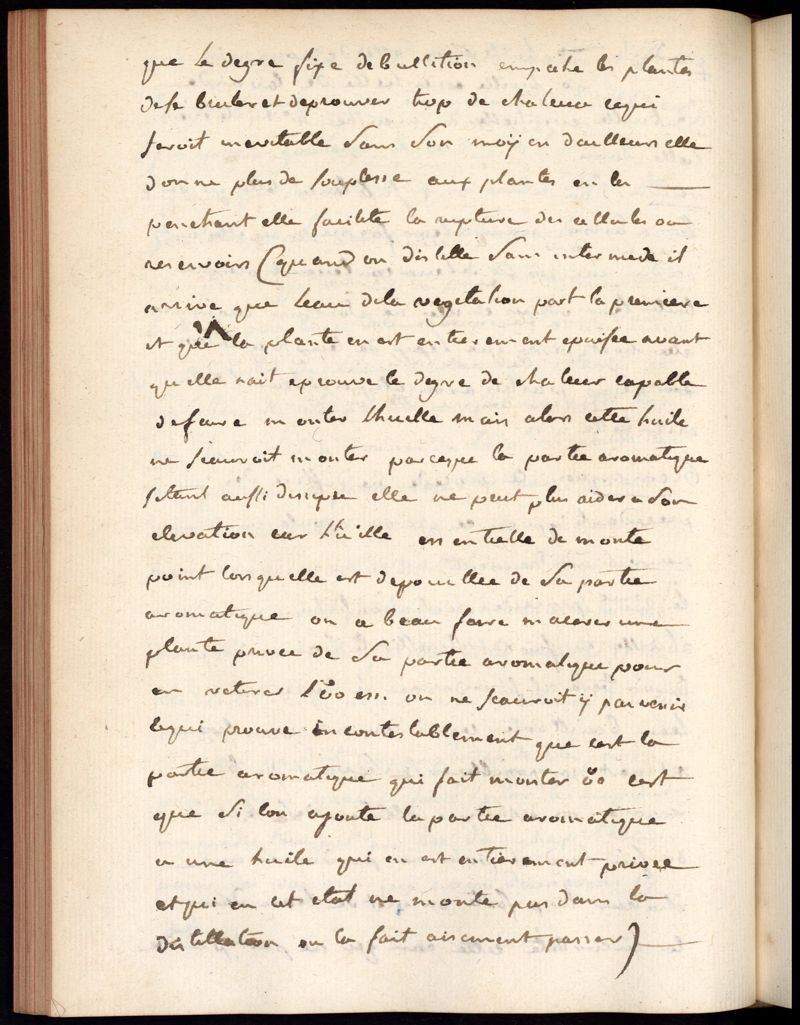 que le degre fixe debullition empeche les plantes
dese bruler et deprouver trop de chaleur cequi
seroit inevitable sans son moÿen dailleurs elle
donne plus de souplesse aux plantes en les
penetrant elle facilite la rupture des cellules ou
reservoirs (quand on distille sans intermede il
arrive que leau dela vegetation part la premiere
et que la plante en est entierement epuisée avant
quelle nait eprouve le degre de chaleur capable
defaire monter lhuille mais alors cette huile
ne scauroit monter parceque la partie aromatique
setant aussi dissipee elle ne peut plus aider a son
elevation car lhuille essentielle de monte
point lorsquelle est depouillee de sa partie
aromatique on a beau faire macerer une
plante privee de sa partie aromatique pour
en retirer l ess. on ne scauroit ÿ parvenir
cequi prouve incontestablement que cest la
partie aromatique qui fait monter cest
que si lon ajoute la partie aromatique
a une huile qui en est entierement privee
et qui en cet etat ne monte pas dans la
distillation on la fait aisement passer)